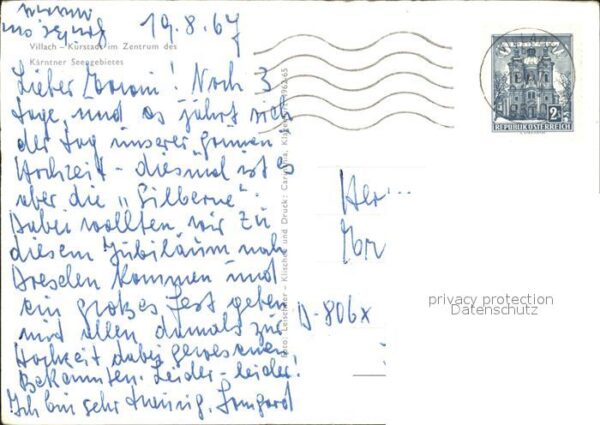 19.8.67
Villach - Kurstadt im Zentrum des
Kärntner Seengebietes
Lieber ! Noch 3
Tage, und es jährt sich
der Tag unserer grünen
Hochzeit - diesmal ist es
aber die "Silberne".
Dabei wollten wir zu
diesem Jubiläum nach
Dresden kommen und
ein großes Fest geben
mit allen damals zur
Hochzeit dabei gewesenen
Bekannten. Leider - leider!
Ich bin sehr traurig. Irmgard
Foto: Klischee und Druck:
2S
REPUBLIK ÖSTERREICH
Her...
D-806x
privacy protection
Datenschutz